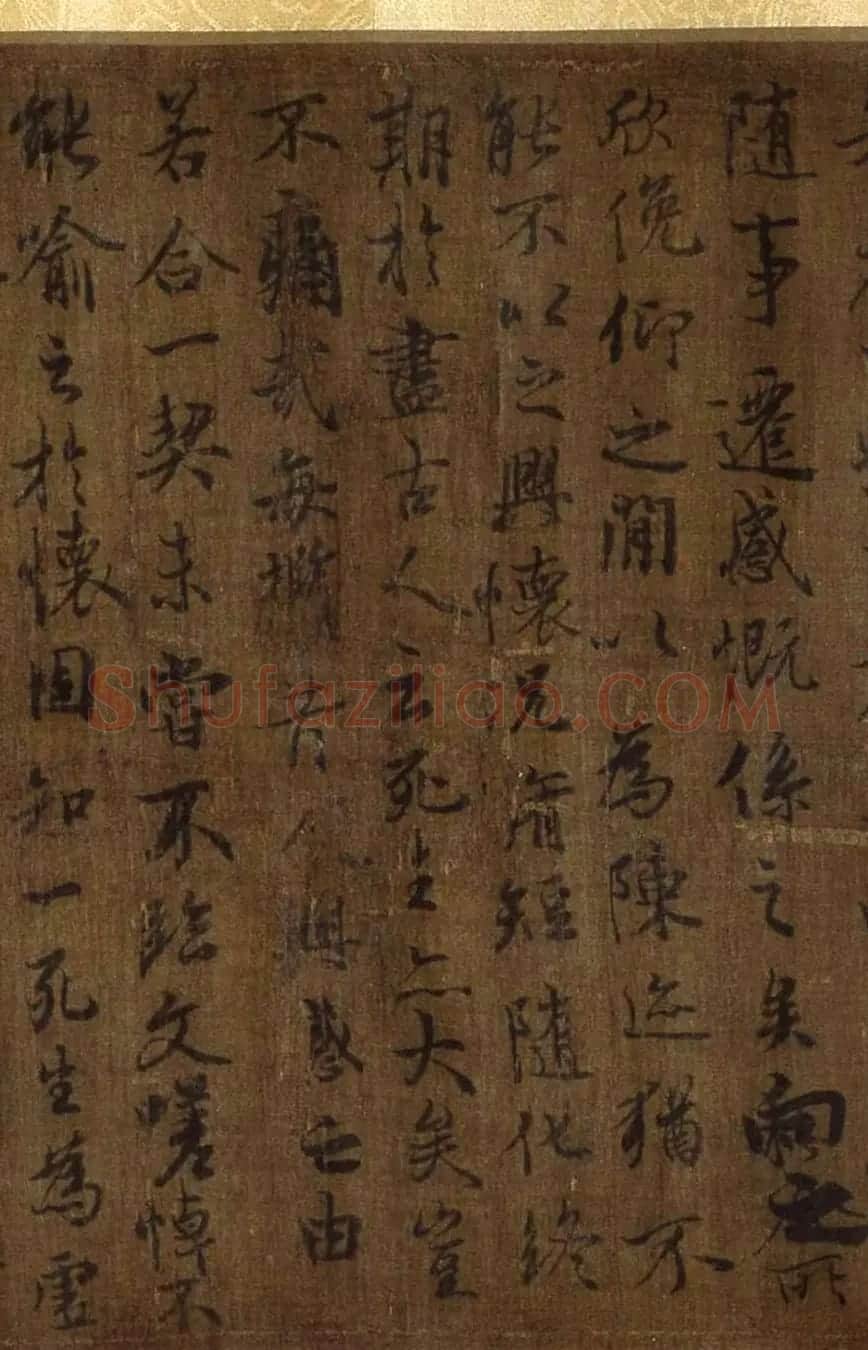 隨事遷感慨係之矣向之所
欣俛仰之閒以為陳迹猶不
能不以之興懷況脩短隨化終
期於盡古人云死生亦大矣豈
不痛哉每攬昔人興感之由
若合一契未嘗不臨文嗟悼不
能喻之於懷固知一死生為虛
Shufaziliao.COM